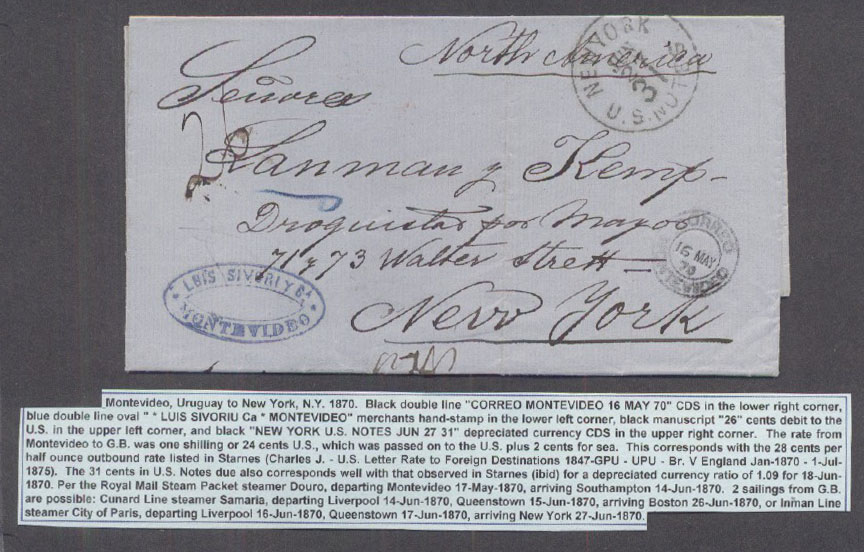 North América
NEW YORK
JUN
27
31
U.S. NOTES
Señores
26
Lanman y Kemp-
Droguistas por Mayor
71 y 73 Walter Strett
CORREO
16 MAY
70
MONTEVIDEO
* LUIS SIVORI Y Ca *
MONTEVIDEO
New York
Montevideo, Uruguay to New York, N.Y. 1870. Black double line "CORREO MONTEVIDEO 16 MAY 70" CDS in the lower right corner,
blue double line oval " * LUIS SIVORIU Ca * MONTEVIDEO" merchants hand-stamp in the lower left corner, black manuscript "26" cents debit to the
U.S. in the upper left corner, and black "NEW YORK U.S. NOTES JUN 27 31" depreciated currency CDS in the upper right corner. The rate from
Montevideo to G.B. was one shilling or 24 cents U.S., which was passed on to the U.S. plus 2 cents for sea. This corresponds with the 28 cents per
half ounce outbound rate listed in Starnes (Charles J. - U.S. Letter Rate to Foreign Destinations 1847-GPU - UPU - Br. V England Jan-1870 - 1-Jul-
1875). The 31 cents in U.S. Notes due also corresponds well with that observed in Starnes (ibid) for a depreciated currency ratio of 1.09 for 18-Jun-
1870. Per the Royal Mail Steam Packet steamer Douro, departing Montevideo 17-May-1870, arriving Southampton 14-Jun-1870. 2 sailings from G.B.
are possible: Cunard Line steamer Samaria, departing Liverpool 14-Jun-1870, Queenstown 15-Jun-1870, arriving Boston 26-Jun-1870, or Inman Line
steamer City of Paris, departing Liverpool 16-Jun-1870, Queenstown 17-Jun-1870, arriving New York 27-Jun-1870.